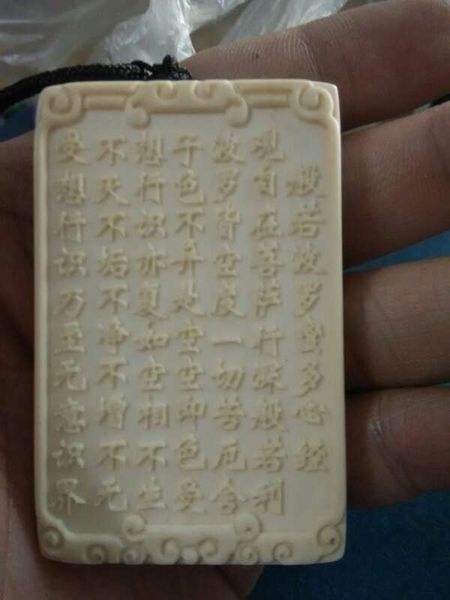 般若波罗蜜多心经
观自在菩萨行深般若利
波罗皆空度一切苦厄舍
子色不异空空即色受
想行识亦复如空相不生
不灭不垢不净不增不无
受想行识乃至无意识界